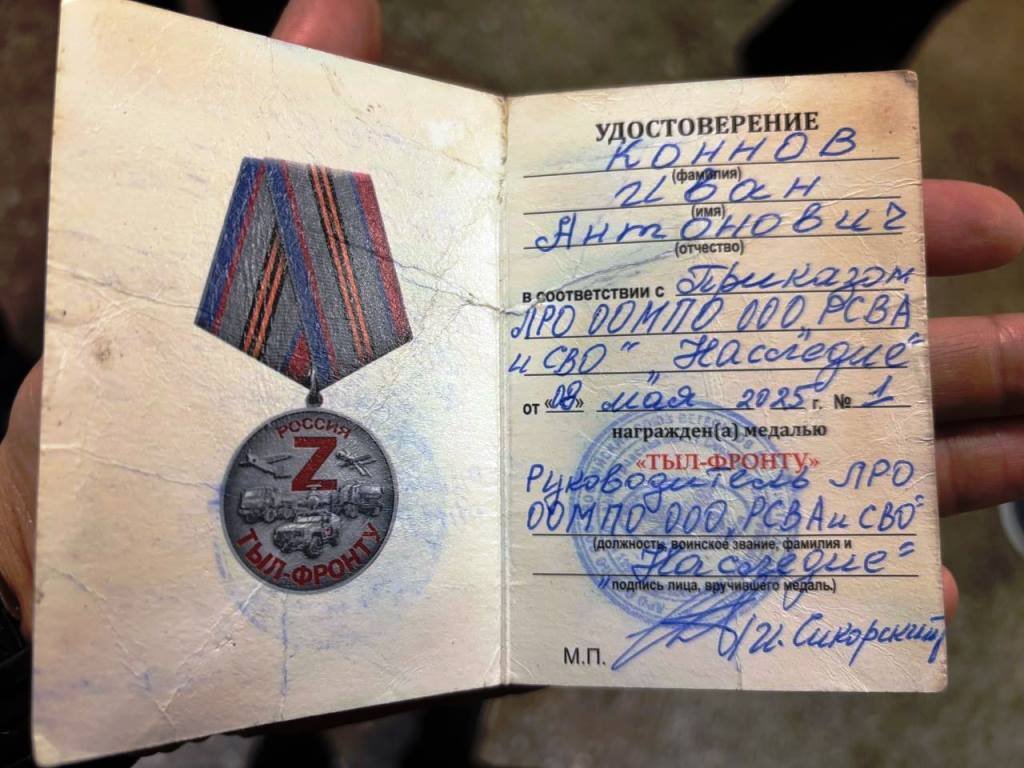 РОССИЯ
Z
ТЫЛ-ФРОНТУ
УДОСТОВЕРЕНИЕ
Коннов
(фамилия)
Иван
(имя)
Антонович
(отчество)
в соответствии с Приказом
ЛРО ООМПО ООО „РСВА
и СВО" „Наследие"
от «08» мая 2025 г. № 1
награжден(а) медалью
«ТЫЛ-ФРОНТУ»
Руководитель ЛРО
ООМПО ООО „РСВА и СВО"
(должность, воинское звание, фамилия и
„Наследие"
подпись лица, вручившего медаль.)
И. Сикорский
М.П.